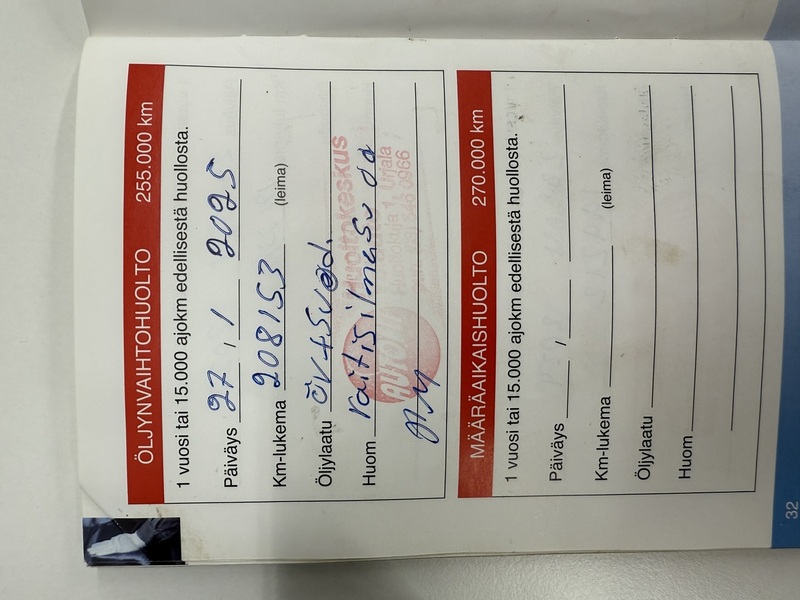 ÖLJYNVAIHTOHUOLTO 255.000 km
1 vuosi tai 15.000 ajokm edellisestä huollosta.
Päiväys 27 . 1 2025
Km-lukema 208153 (leima)
Öljylaatu öv+suod.
Huom raitisilmasuoda
Huoltokeskus
Urjala
MÄÄRÄAIKAISHUOLTO 270.000 km
1 vuosi tai 15.000 ajokm edellisestä huollosta.
Päiväys .
Km-lukema (leima)
Öljylaatu
Huom
32